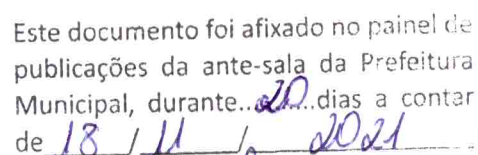 Este documento foi afixado no painel de
publicações da ante-sala da Prefeitura
Municipal, durante..20..dias a contar
de 18 / 11 / 2021